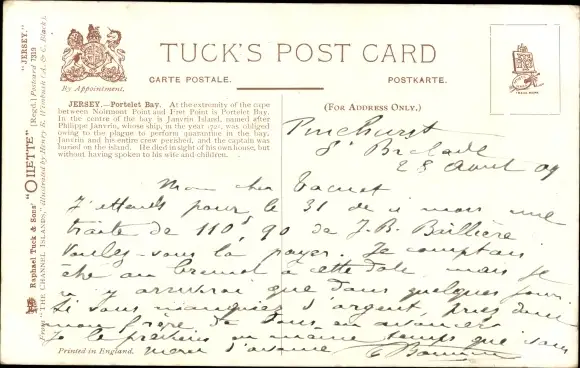 TUCK'S POST CARD
By Appointment.
CARTE POSTALE.
POSTKARTE.
TRADE MARK
JERSEY.—Portelet Bay. At the extremity of the cape
between Noirmont Point and Fret Point is Portelet Bay.
In the centre of the bay is Janvrin Island, named after
Philippe Janvrin, whose ship, in the year 1721, was obliged
owing to the plague to perform quarantine in the bay.
Janvrin and his entire crew perished, and the captain was
buried on the island. He died in sight of his own house, but
without having spoken to his wife and children.
(FOR ADDRESS ONLY.)
Pinehurst
St Brelade
28 Aout 09
Mon cher
J'attends pour le 31 de ce mois une
traite de 110f,90 de J.B. Baillière
Voulez-vous la payer. Je comptais
être au à cette date mais je
n'y arriverai que dans quelques jours
Si vous manquiez d'argent, priez donc
mon frère de vous en avancer
Je le préviens en même temps que vous
Merci d'avance
Printed in England.
"JERSEY."
Raphael Tuck & Sons' "OILETTE" [Regd.] Postcard 7319
From "THE CHANNEL ISLANDS," illustrated by Henry B. Wimbush (A. & C. Black).